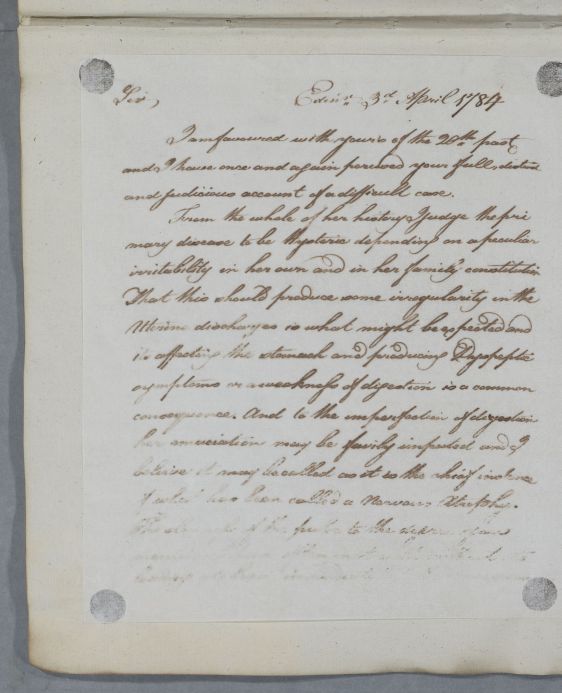 Sir, Edinr. 3d. April 1784
I am favoured with yours of the 20th past
and I have once and again perused your full, distinct
and judicious account of a difficult case.
From the whole of her history I judge the pri
mary disease to be Hysteria depending on a peculiar
irritability in her own and in her family constitution
That this should produce some irregularity in the
Uterine discharges is what might be expected and
its affecting the stomach and producing Dyspeptic
symptoms or a weakness of digestion is a common
consequence. And to the imperfection of digestion
her emaciation may be fairly imputed and I
believe it may be called as it is the chief instance
of what has been called a Nervous Atrophy.
The of the to the your